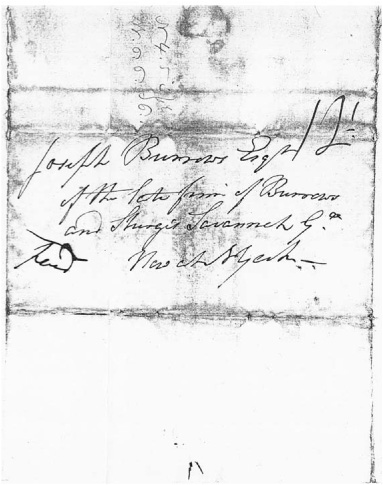 Joseph Burrows Esqr
of the late firm of Burrows
and Sturgis Savannah Ga
Now at N York